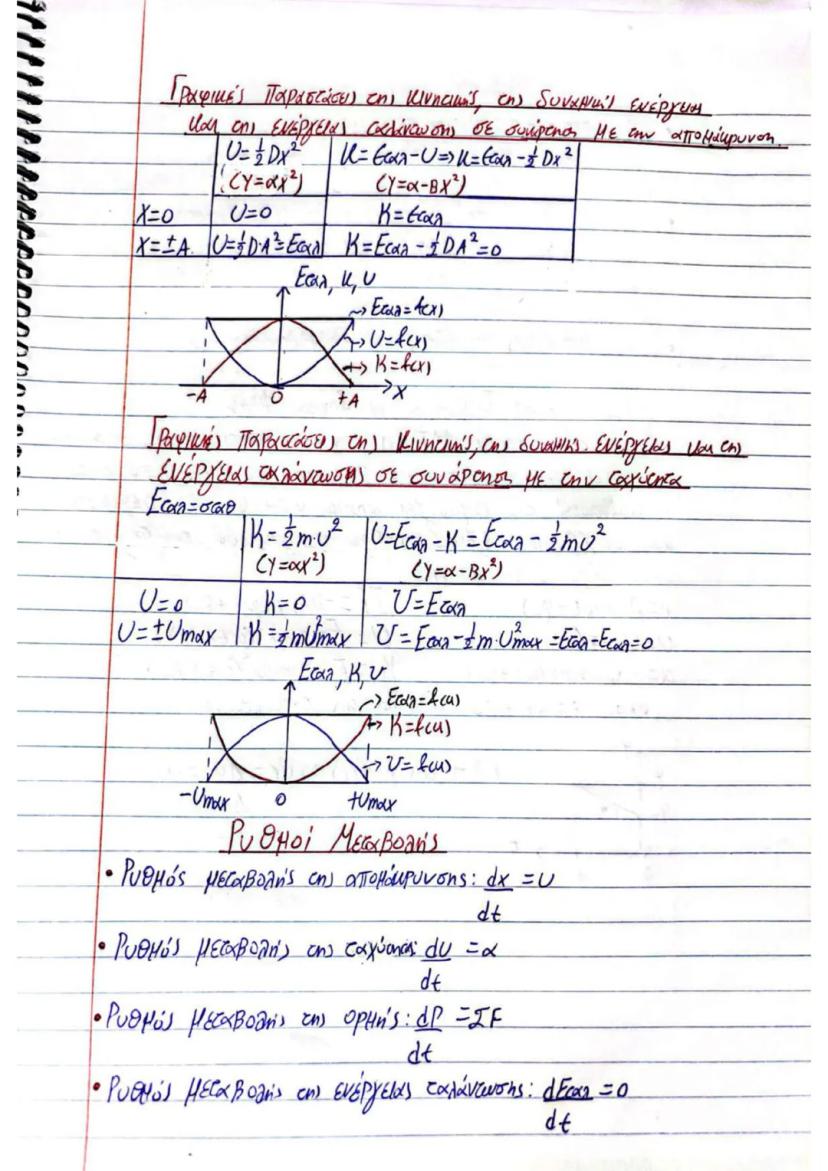 Γραφικές Παραστάσεις της κινητικής, της δυναμικής ενέργειας
και της ενέργειας ταλάντωσης σε συνάρτηση με την απομάκρυνση.
U=½Dx² K=Εταλ-U=>K=Εταλ-½Dx²
(Y=αx²) (Y=α-Βx²)
X=0 U=0 K=Εταλ
X=±A U=½D·A²=Εταλ K=Εταλ-½DA²=0
Εταλ, K, U
Εταλ=f(x)
U=f(x)
K=f(x)
-A 0 +A X
Γραφικές Παραστάσεις της Κινητικής, της δυναμικ. ενέργειας και της
ενέργειας ταλάντωσης σε συνάρτηση με την ταχύτητα
Εταλ=σταθ
K=½m·υ² U=Εταλ-K=Εταλ-½mυ²
(Y=αx²) (Y=α-Βx²)
υ=0 K=0 U=Εταλ
υ=±υmax K=½mυ²max U=Εταλ-½m·υ²max=Εταλ-Εταλ=0
Εταλ, K, U
Εταλ=f(υ)
K=f(υ)
U=f(υ)
-υmax 0 +υmax
Ρυθμοί Μεταβολής
• Ρυθμός μεταβολής της απομάκρυνσης: dx =υ
dt
• Ρυθμός μεταβολής της ταχύτητας: dυ =α
dt
• Ρυθμός μεταβολής της ορμής: dP =ΣF
dt
• Ρυθμός μεταβολής της ενέργειας ταλάντωσης: dΕταλ =0
dt